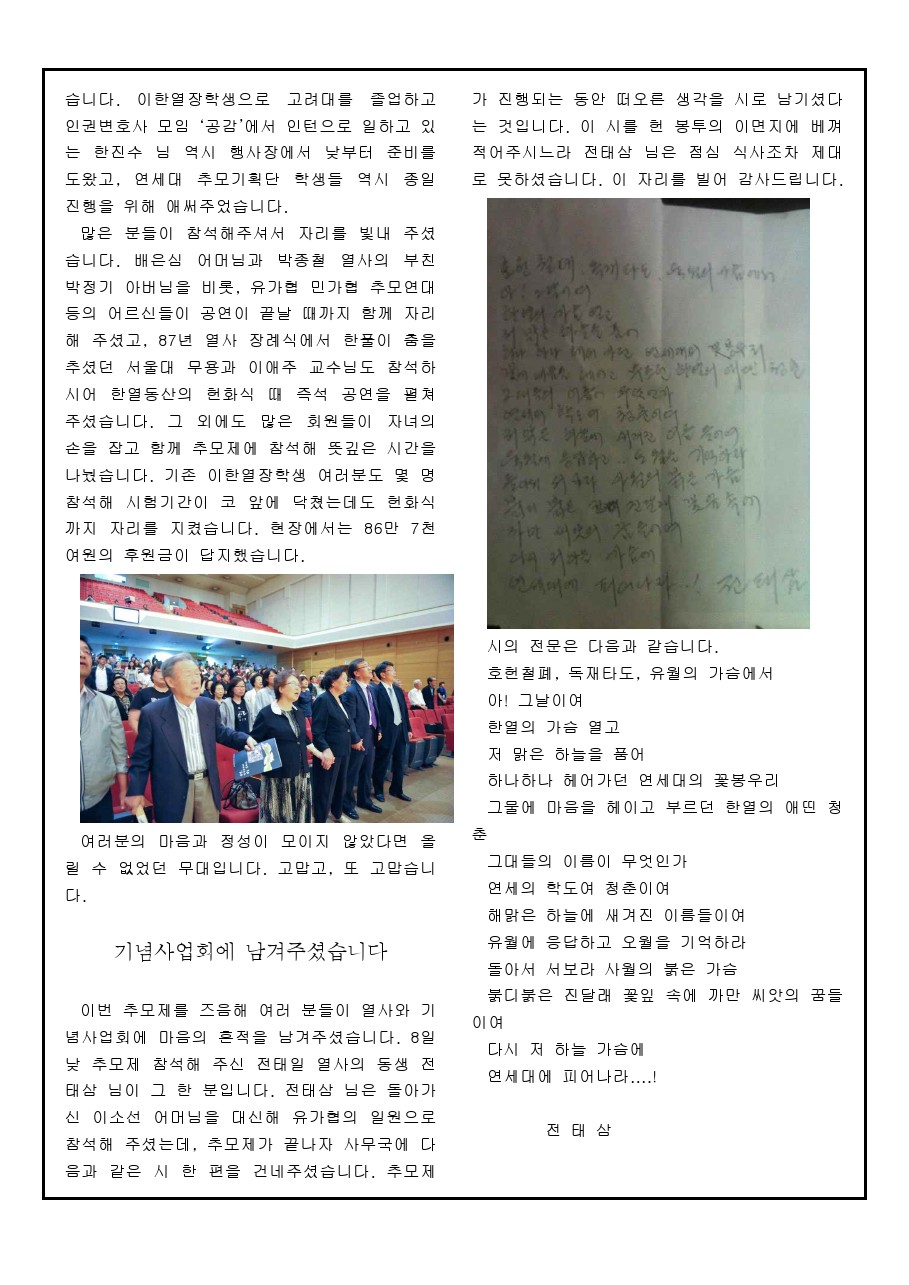 습니다. 이한열장학생으로 고려대를 졸업하고
인권변호사 모임 ‘공감’에서 인턴으로 일하고 있
는 한진수 님 역시 행사장에서 낮부터 준비를
도왔고, 연세대 추모기획단 학생들 역시 종일
진행을 위해 애써주었습니다.
많은 분들이 참석해주셔서 자리를 빛내 주셨
습니다. 배은심 어머님과 박종철 열사의 부친
박정기 아버님을 비롯, 유가협 민가협 추모연대
등의 어르신들이 공연이 끝날 때까지 함께 자리
해 주셨고, 87년 열사 장례식에서 한풀이 춤을
추셨던 서울대 무용과 이애주 교수님도 참석하
시어 한열동산의 헌화식 때 즉석 공연을 펼쳐
주셨습니다. 그 외에도 많은 회원들이 자녀의
손을 잡고 함께 추모제에 참석해 뜻깊은 시간을
나눴습니다. 기존 이한열장학생 여러분도 몇 명
참석해 시험기간이 코 앞에 닥쳤는데도 헌화식
까지 자리를 지켰습니다. 현장에서는 86만 7천
여원의 후원금이 답지했습니다.
여러분의 마음과 정성이 모이지 않았다면 올
릴 수 없었던 무대입니다. 고맙고, 또 고맙습니
다.
기념사업회에 남겨주셨습니다
이번 추모제를 즈음해 여러 분들이 열사와 기
념사업회에 마음의 흔적을 남겨주셨습니다. 8일
낮 추모제 참석해 주신 전태일 열사의 동생 전
태삼 님이 그 한 분입니다. 전태삼 님은 돌아가
신 이소선 어머님을 대신해 유가협의 일원으로
참석해 주셨는데, 추모제가 끝나자 사무국에 다
음과 같은 시 한 편을 건네주셨습니다. 추모제
가 진행되는 동안 떠오른 생각을 시로 남기셨다
는 것입니다. 이 시를 헌 봉투의 이면지에 베껴
적어주시느라 전태삼 님은 점심 식사조차 제대
로 못하셨습니다. 이 자리를 빌어 감사드립니다.
시의 전문은 다음과 같습니다.
호헌철폐, 독재타도, 유월의 가슴에서
아! 그날이여
한열의 가슴 열고
저 맑은 하늘을 품어
하나하나 헤어가던 연세대의 꽃봉우리
그물에 마음을 헤이고 부르던 한열의 애띤 청
춘
그대들의 이름이 무엇인가
연세의 학도여 청춘이여
해맑은 하늘에 새겨진 이름들이여
유월에 응답하고 오월을 기억하라
돌아서 서보라 사월의 붉은 가슴
붉디붉은 진달래 꽃잎 속에 까만 씨앗의 꿈들
이여
다시 저 하늘 가슴에
연세대에 피어나라....!
전 태 삼